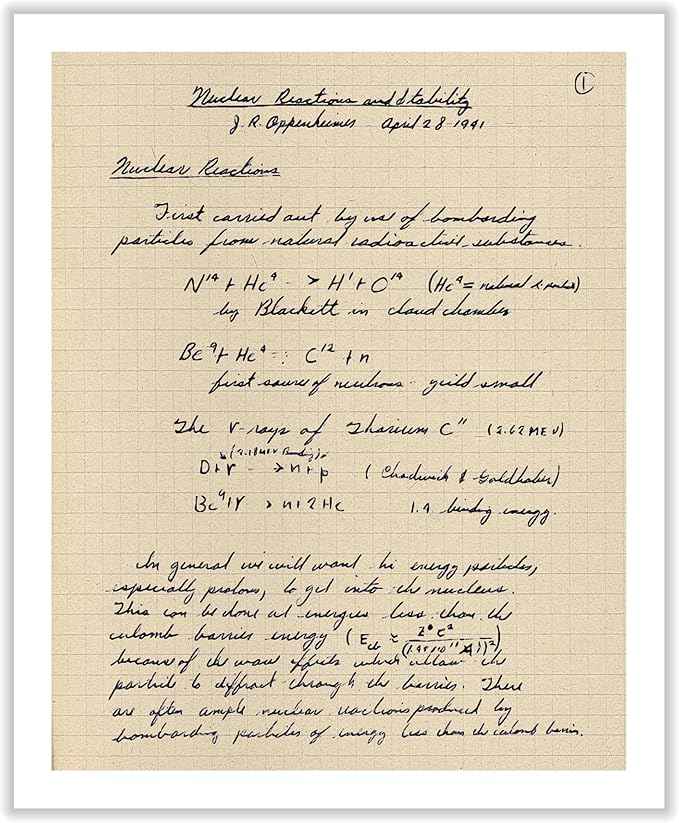 ①
Nuclear Reactions and Stability
J. R. Oppenheimer - April 28 - 1941
Nuclear Reactions
First carried out by use of bombarding
particles from natural radioactive substances.
N¹⁴ + He⁴ -> H¹ + O¹⁷ (He⁴ = natural α particles)
by Blackett in cloud chamber
Be⁹ + He⁴ → C¹² + n
first source of neutrons - yield small
The γ-rays of Thorium C" (2.62 MEV)
(2.18 MEV Binding)
D + γ -> n + p (Chadwick & Goldhaber)
Be⁹ + γ > n + 2He 1.9 binding energy.
In general we will want hi energy particles,
especially protons, to get into the nucleus.
This can be done at energies less than the
coulomb barrier energy
because of the wave effects which allow the
particle to diffract through the barrier. There
are often ample nuclear reactions produced by
bombarding particles of energy less than the coulomb barrier.